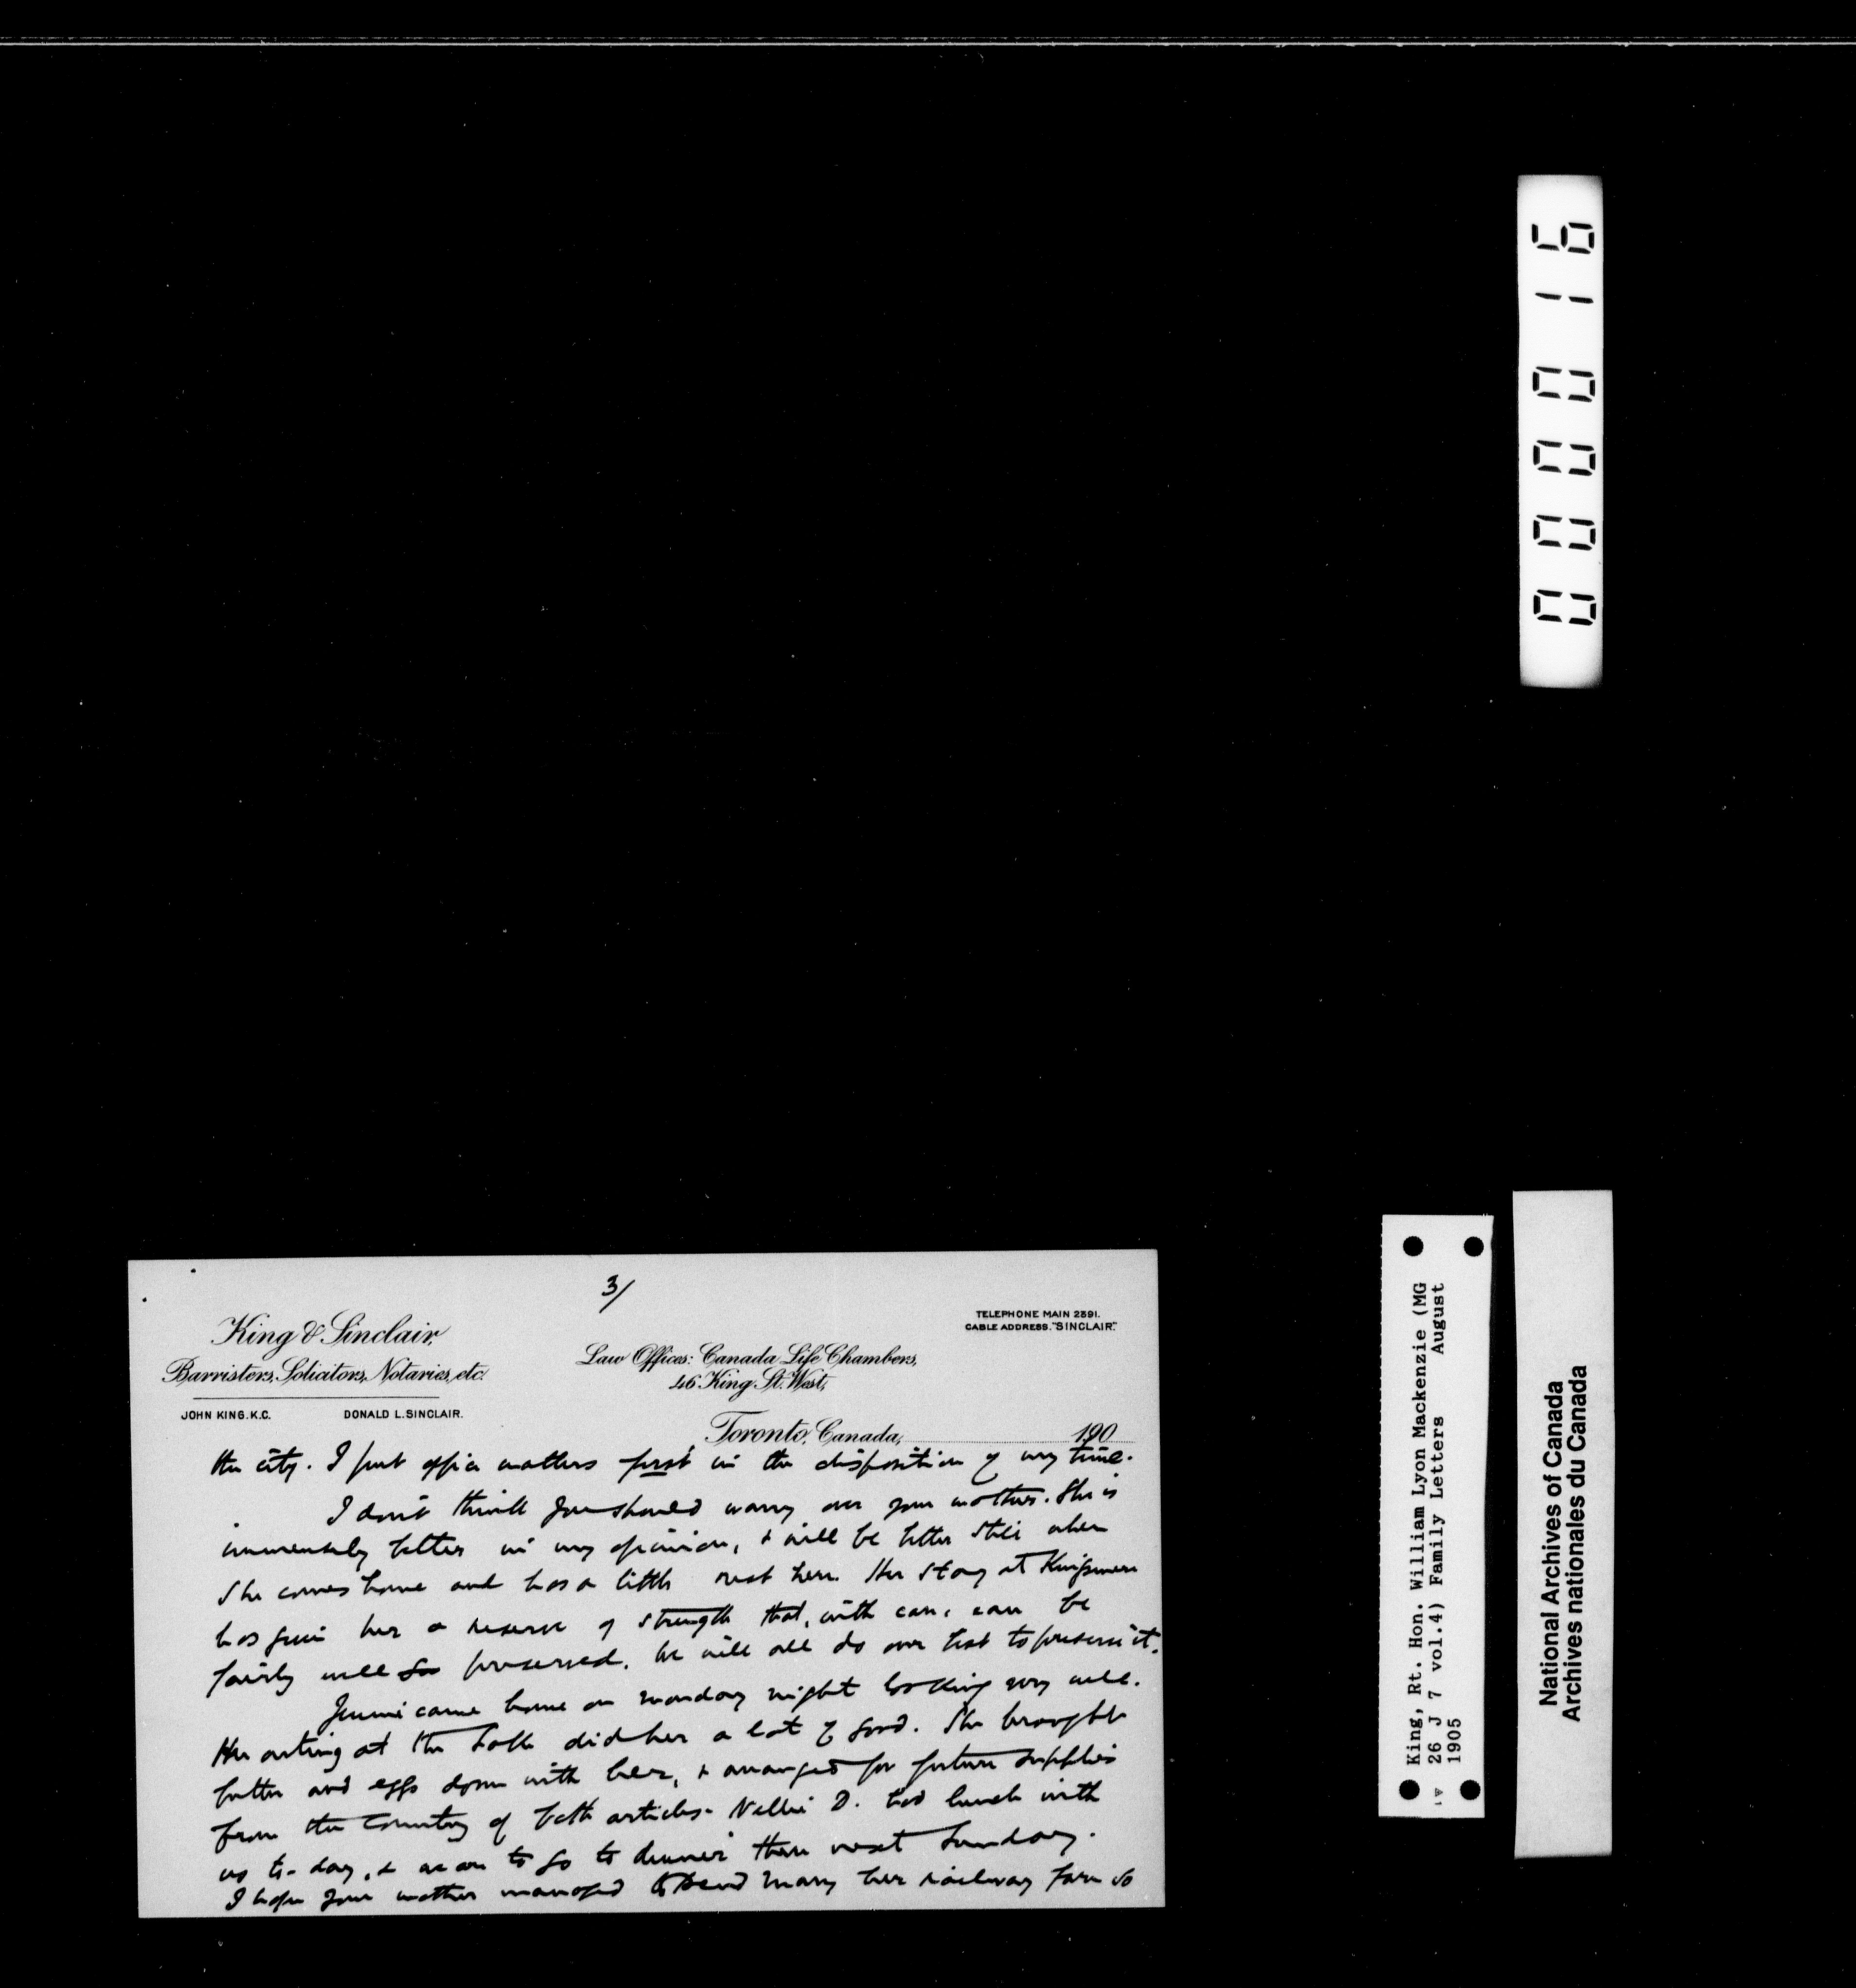 3/
King & Sinclair,
Barristers, Solicitors, Notaries, etc.
JOHN KING. K.C. DONALD L. SINCLAIR.
Law Offices: Canada Life Chambers,
46 King St. West,
TELEPHONE MAIN 2391.
CABLE ADDRESS. "SINCLAIR."
Toronto, Canada, 190
the city. I put office matters first in the disposition of my time.
I don't think you should worry over your mother. She is
immensely better in my opinion, & will be better still when
she comes home and has a little rest here. Her stay at Kingsmere
has given her a reserve of strength that, with care, can be
fairly well preserved. We will all do our best to preserve it.
Jennie came home on Monday night looking very well.
Her outing at the did her a lot of good. She brought
butter and eggs down with her, & arranged for future supplies
from the country of both articles. Nellie D. had lunch with
us to-day, & we are to go to dinner there next Sunday.
I hope your mother managed to send Mary her railway fare so
000016
King, Rt. Hon. William Lyon Mackenzie (MG
26 J 7 vol.4) Family Letters August
1905
National Archives of Canada
Archives nationales du Canada